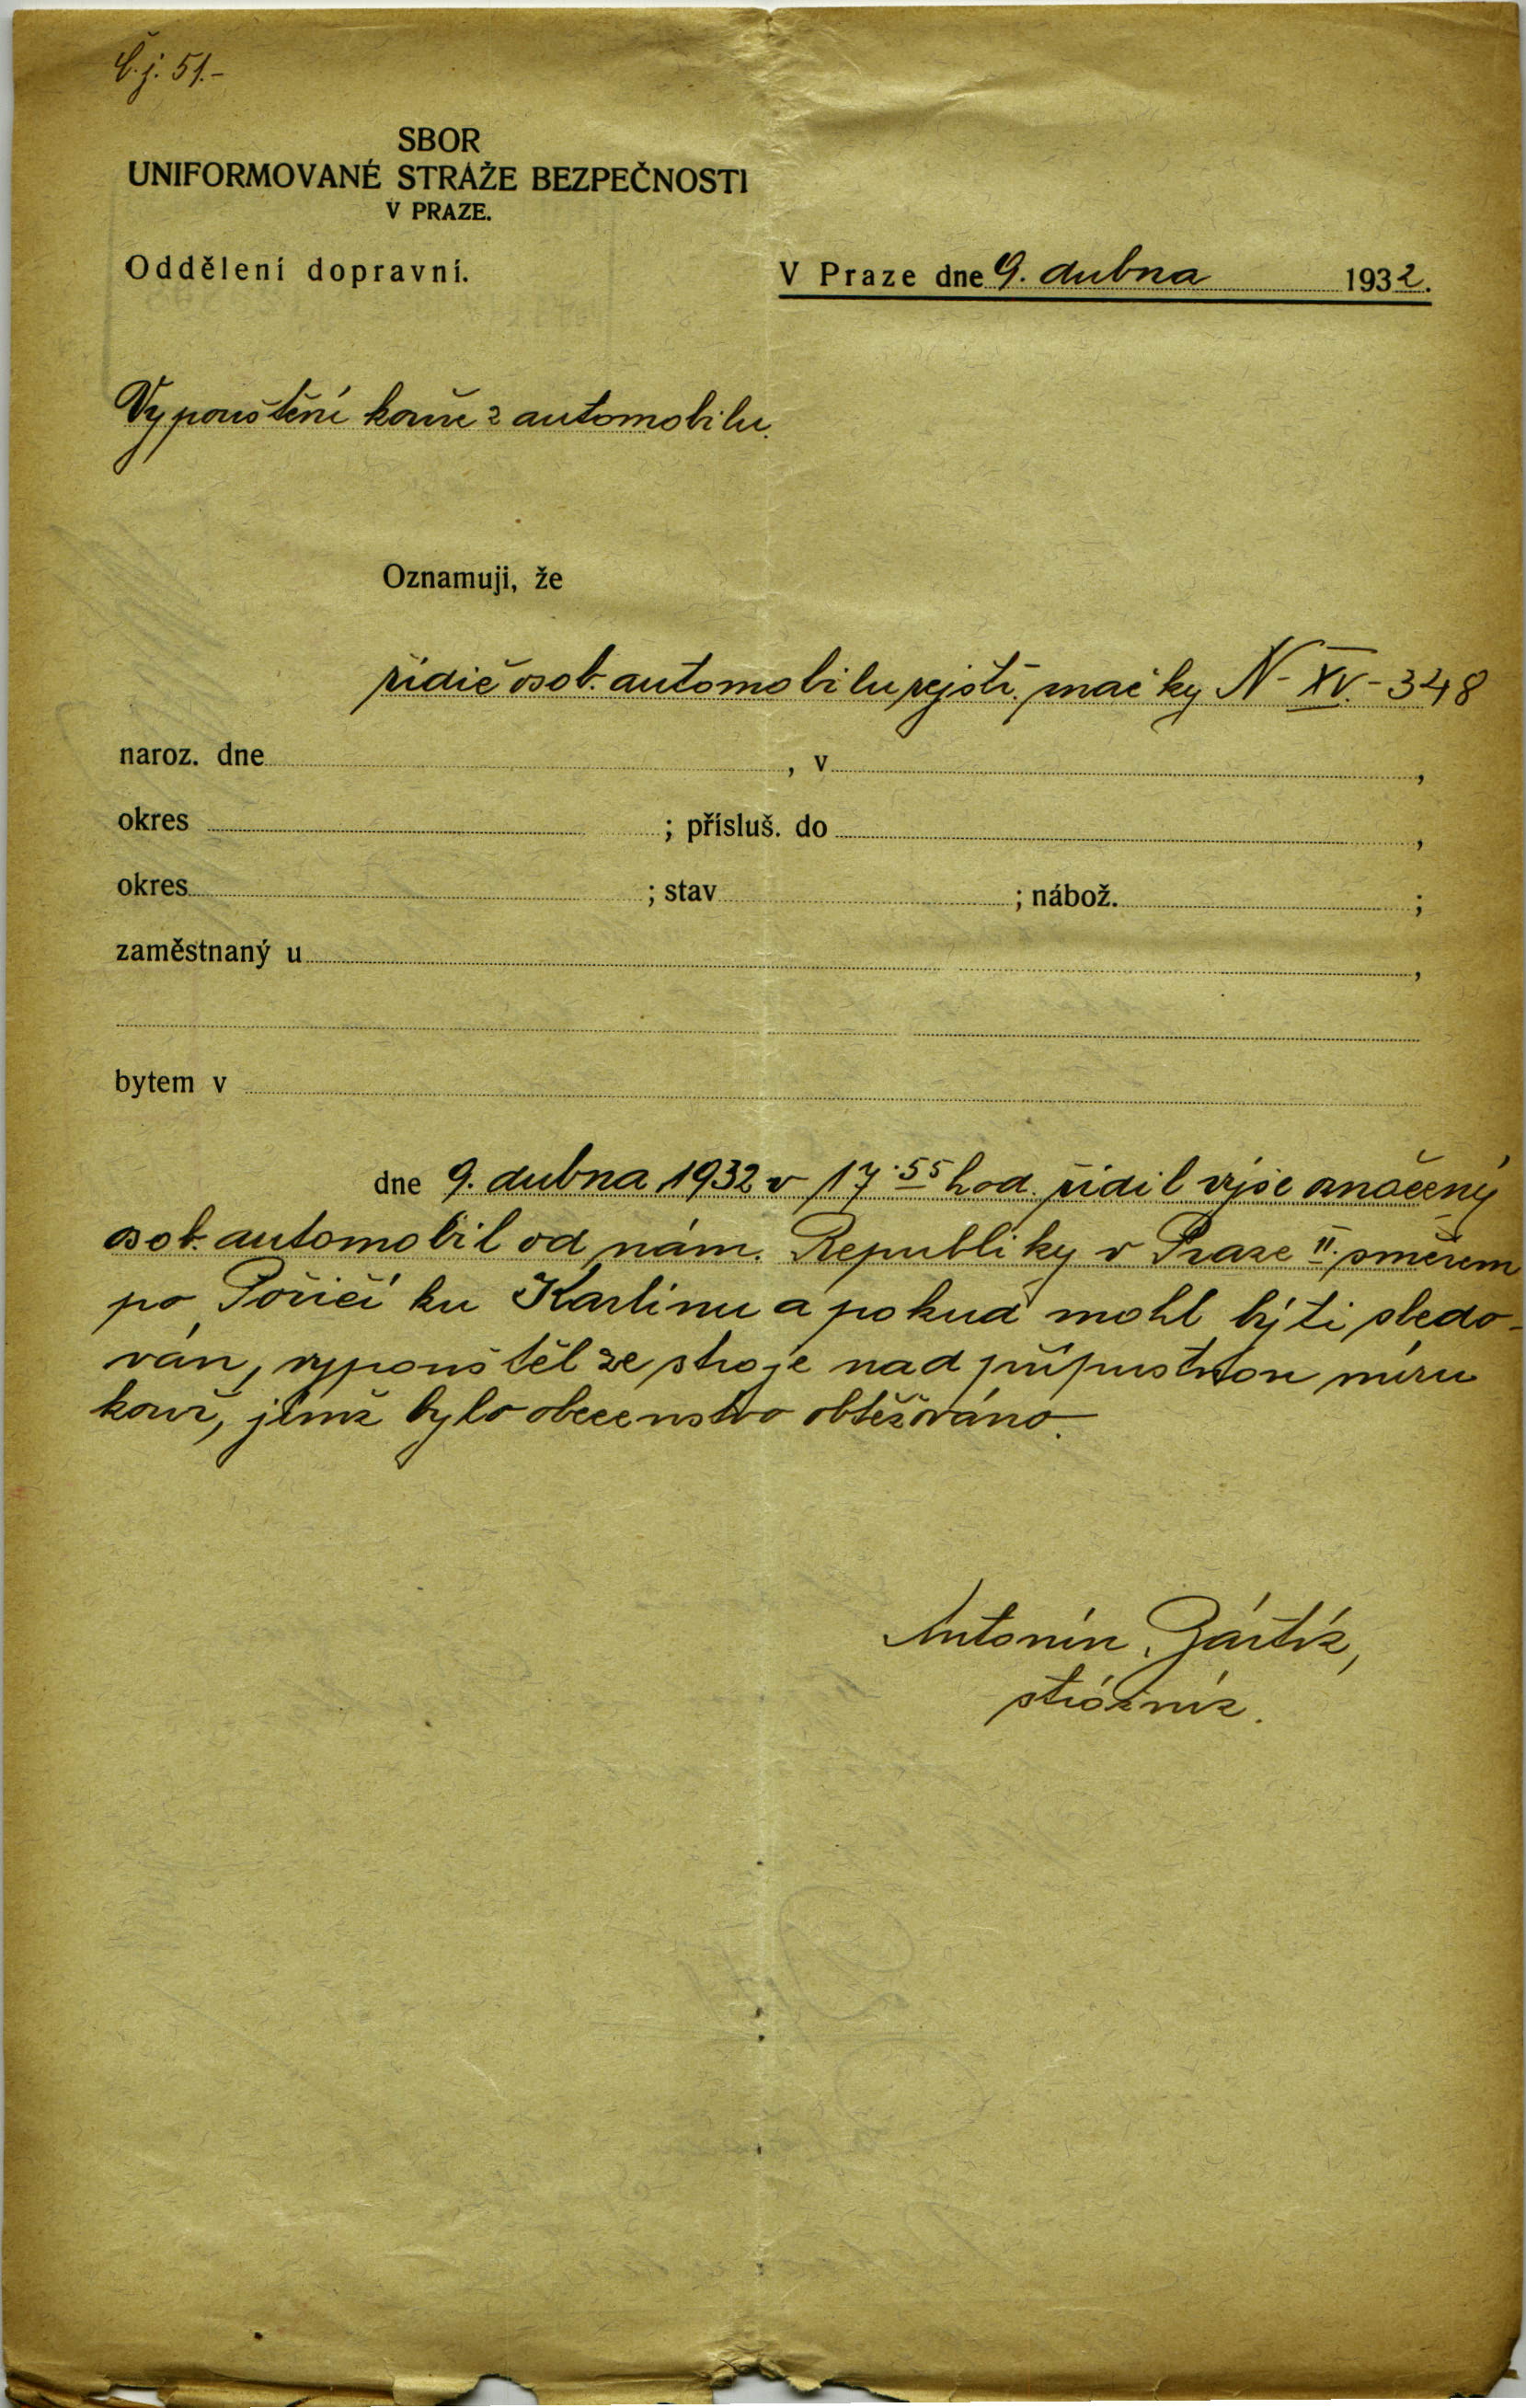 Č.j. 51.-
SBOR
UNIFORMOVANÉ STRÁŽE BEZPEČNOSTI
V PRAZE.
Oddělení dopravní.
V Praze dne 9. dubna 1932.
Vypouštění kouře z automobilu.
Oznamuji, že
řidič osob. automobilu rejstř. značky N-XV.-348
naroz. dne , v ,
okres ; přísluš. do ,
okres ; stav ; nábož. ;
zaměstnaný u ,
bytem v
dne 9. dubna 1932 v 17.55 hod. řídil výše značený
osob. automobil od nám. Republiky v Praze II. směrem
po Poříčí ku Karlínu a pokud mohl býti sledo-
ván, vypouštěl ze stroje nad přípustnou míru
kouř, jímž bylo obecenstvo obtěžováno.
Antonín
strážník.